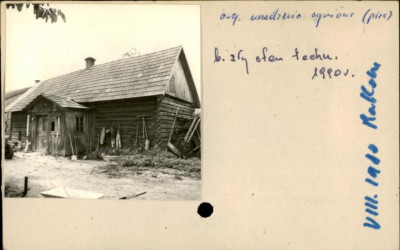 oryg. urządzenia ogniowe (piec)
b. zły stan techn.
1990r.
VIII. 1980 Rutkow